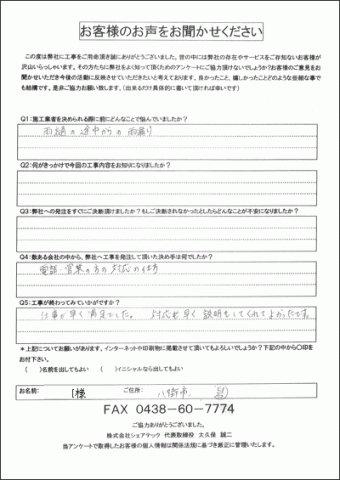 お客様のお声をお聞かせください
この度は弊社に工事をご用命頂き誠にありがとうございました。世の中には弊社の存在やサービスをご存知ないお客様が
沢山いらっしゃいます。その方たちに弊社をよく知って頂くためのアンケートにご協力頂けないでしょうか?お客様のご意見をお
聞かせいただき今後の活動に反映させていただきたいと考えております。良かったこと、嬉しかったことどのような些細な事で
も結構です。是非ご協力お願い致します。(出来るだけ具体的に書いて頂ければ幸いです)
Q1:施工業者を決められる際に前にどんなことで悩んでいましたか?
雨樋の途中からの雨漏り
Q2:何がきっかけで今回の工事内容をお知りになりましたか?
Q3:弊社への発注をすぐにご決断頂けましたか?もしご決断されなかったとしたらどんなことが不安になりましたか?
Q4:数ある会社の中から、弊社へ工事を発注して頂いた決め手は何でしたか?
電話・営業の方の対応の仕方
Q5:工事が終わってみていかがですか?
仕事が早く満足でした。 対応も早く説明もしてくれてよかったです。
*上記についてお願いがあります。インターネットや印刷物に掲載させて頂いてもよろしいでしょうか?下記の中から〇印を
お付下さい。
( )名前を出してもよい ( )イニシャルなら出してもよい
お名前: 様 ご住所: 八街市
FAX 0438-60-7774
ご協力ありがとうございました。
株式会社シェアテック 代表取締役 大久保 誠二
当アンケートで取得したお客様の個人情報は関係法規に基づき厳正に管理いたします。